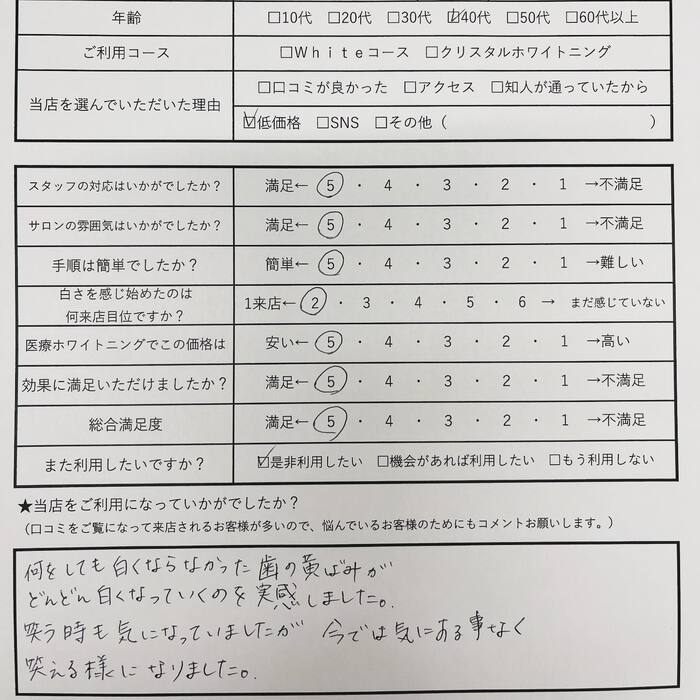 年齢 □10代 □20代 □30代 ☑40代 □50代 □60代以上
ご利用コース □Ｗｈｉｔｅコース □クリスタルホワイトニング
当店を選んでいただいた理由 □口コミが良かった □アクセス □知人が通っていたから
☑低価格 □SNS □その他（ ）
スタッフの対応はいかがでしたか？ 満足← 5 ・ 4 ・ 3 ・ 2 ・ 1 →不満足
サロンの雰囲気はいかがでしたか？ 満足← 5 ・ 4 ・ 3 ・ 2 ・ 1 →不満足
手順は簡単でしたか？ 簡単← 5 ・ 4 ・ 3 ・ 2 ・ 1 →難しい
白さを感じ始めたのは
何来店目位ですか？ 1来店← 2 ・ 3 ・ 4 ・ 5 ・ 6 → まだ感じていない
医療ホワイトニングでこの価格は 安い← 5 ・ 4 ・ 3 ・ 2 ・ 1 →高い
効果に満足いただけましたか？ 満足← 5 ・ 4 ・ 3 ・ 2 ・ 1 →不満足
総合満足度 満足← 5 ・ 4 ・ 3 ・ 2 ・ 1 →不満足
また利用したいですか？ ☑是非利用したい □機会があれば利用したい □もう利用しない
★当店をご利用になっていかがでしたか？
（口コミをご覧になって来店されるお客様が多いので、悩んでいるお客様のためにもコメントお願いします。）
何をしても白くならなかった歯の黄ばみが
どんどん白くなっていくのを実感しました。
笑う時も気になっていましたが 今では気にある事なく
笑える様になりました。